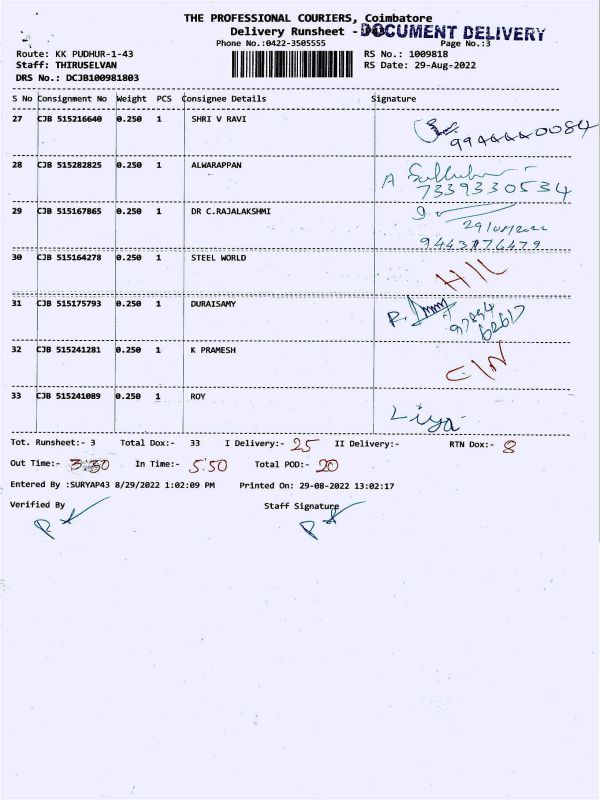 THE PROFESSIONAL COURIERS, Coimbatore
Delivery Runsheet -
DOCUMENT DELIVERY
Phone No.:0422-3505555 Page No.:3
Route: KK PUDHUR-1-43 RS No.: 1009818
Staff: THIRUSELVAN RS Date: 29-Aug-2022
DRS No.: DCJB100981803
S No Consignment No Weight PCS Consignee Details Signature
27 CJB 515216640 0.250 1 SHRI V RAVI
28 CJB 515282825 0.250 1 ALWARAPPAN A
7339330534
29 CJB 515167865 0.250 1 DR C.RAJALAKSHMI
29/08/2022
9443176479
30 CJB 515164278 0.250 1 STEEL WORLD
31 CJB 515175793 0.250 1 DURAISAMY
32 CJB 515241281 0.250 1 K PRAMESH
33 CJB 515241089 0.250 1 ROY Liya
Tot. Runsheet:- 3 Total Dox:- 33 I Delivery:- 25 II Delivery:- RTN Dox:- 8
Out Time:- 3:30 In Time:- 5:50 Total POD:- 20
Entered By :SURYAP43 8/29/2022 1:02:09 PM Printed On: 29-08-2022 13:02:17
Verified By Staff Signature